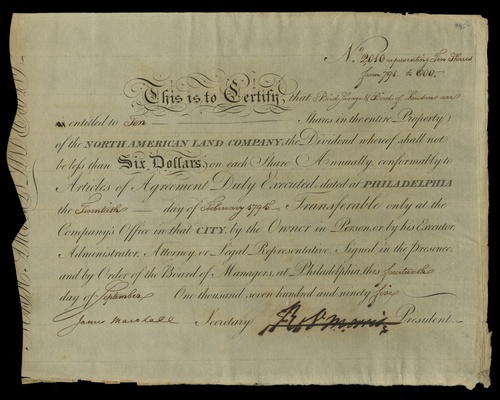 No. 2010 representing Ten Shares
from 791. to 800.
This is to Certify, that Bird, Savage & Bird of London are
entitled to Ten Shares in the entire Property
of the NORTH AMERICAN LAND COMPANY, the Dividend whereof shall not
be less than Six Dollars, on each Share Annually, conformably to
Articles of Agreement Duly Executed, dated at PHILADELPHIA
the Twentieth day of February 1795. Transferable only at the
Company's Office in that CITY, by the Owner in Person, or by his Executor,
Administrator, Attorney, or Legal Representative. Signed in the presence,
and by Order of the Board of Managers, at Philadelphia, this fourteenth
day of September One thousand, seven hundred and ninety five
James Marshall Secretary Robt Morris President